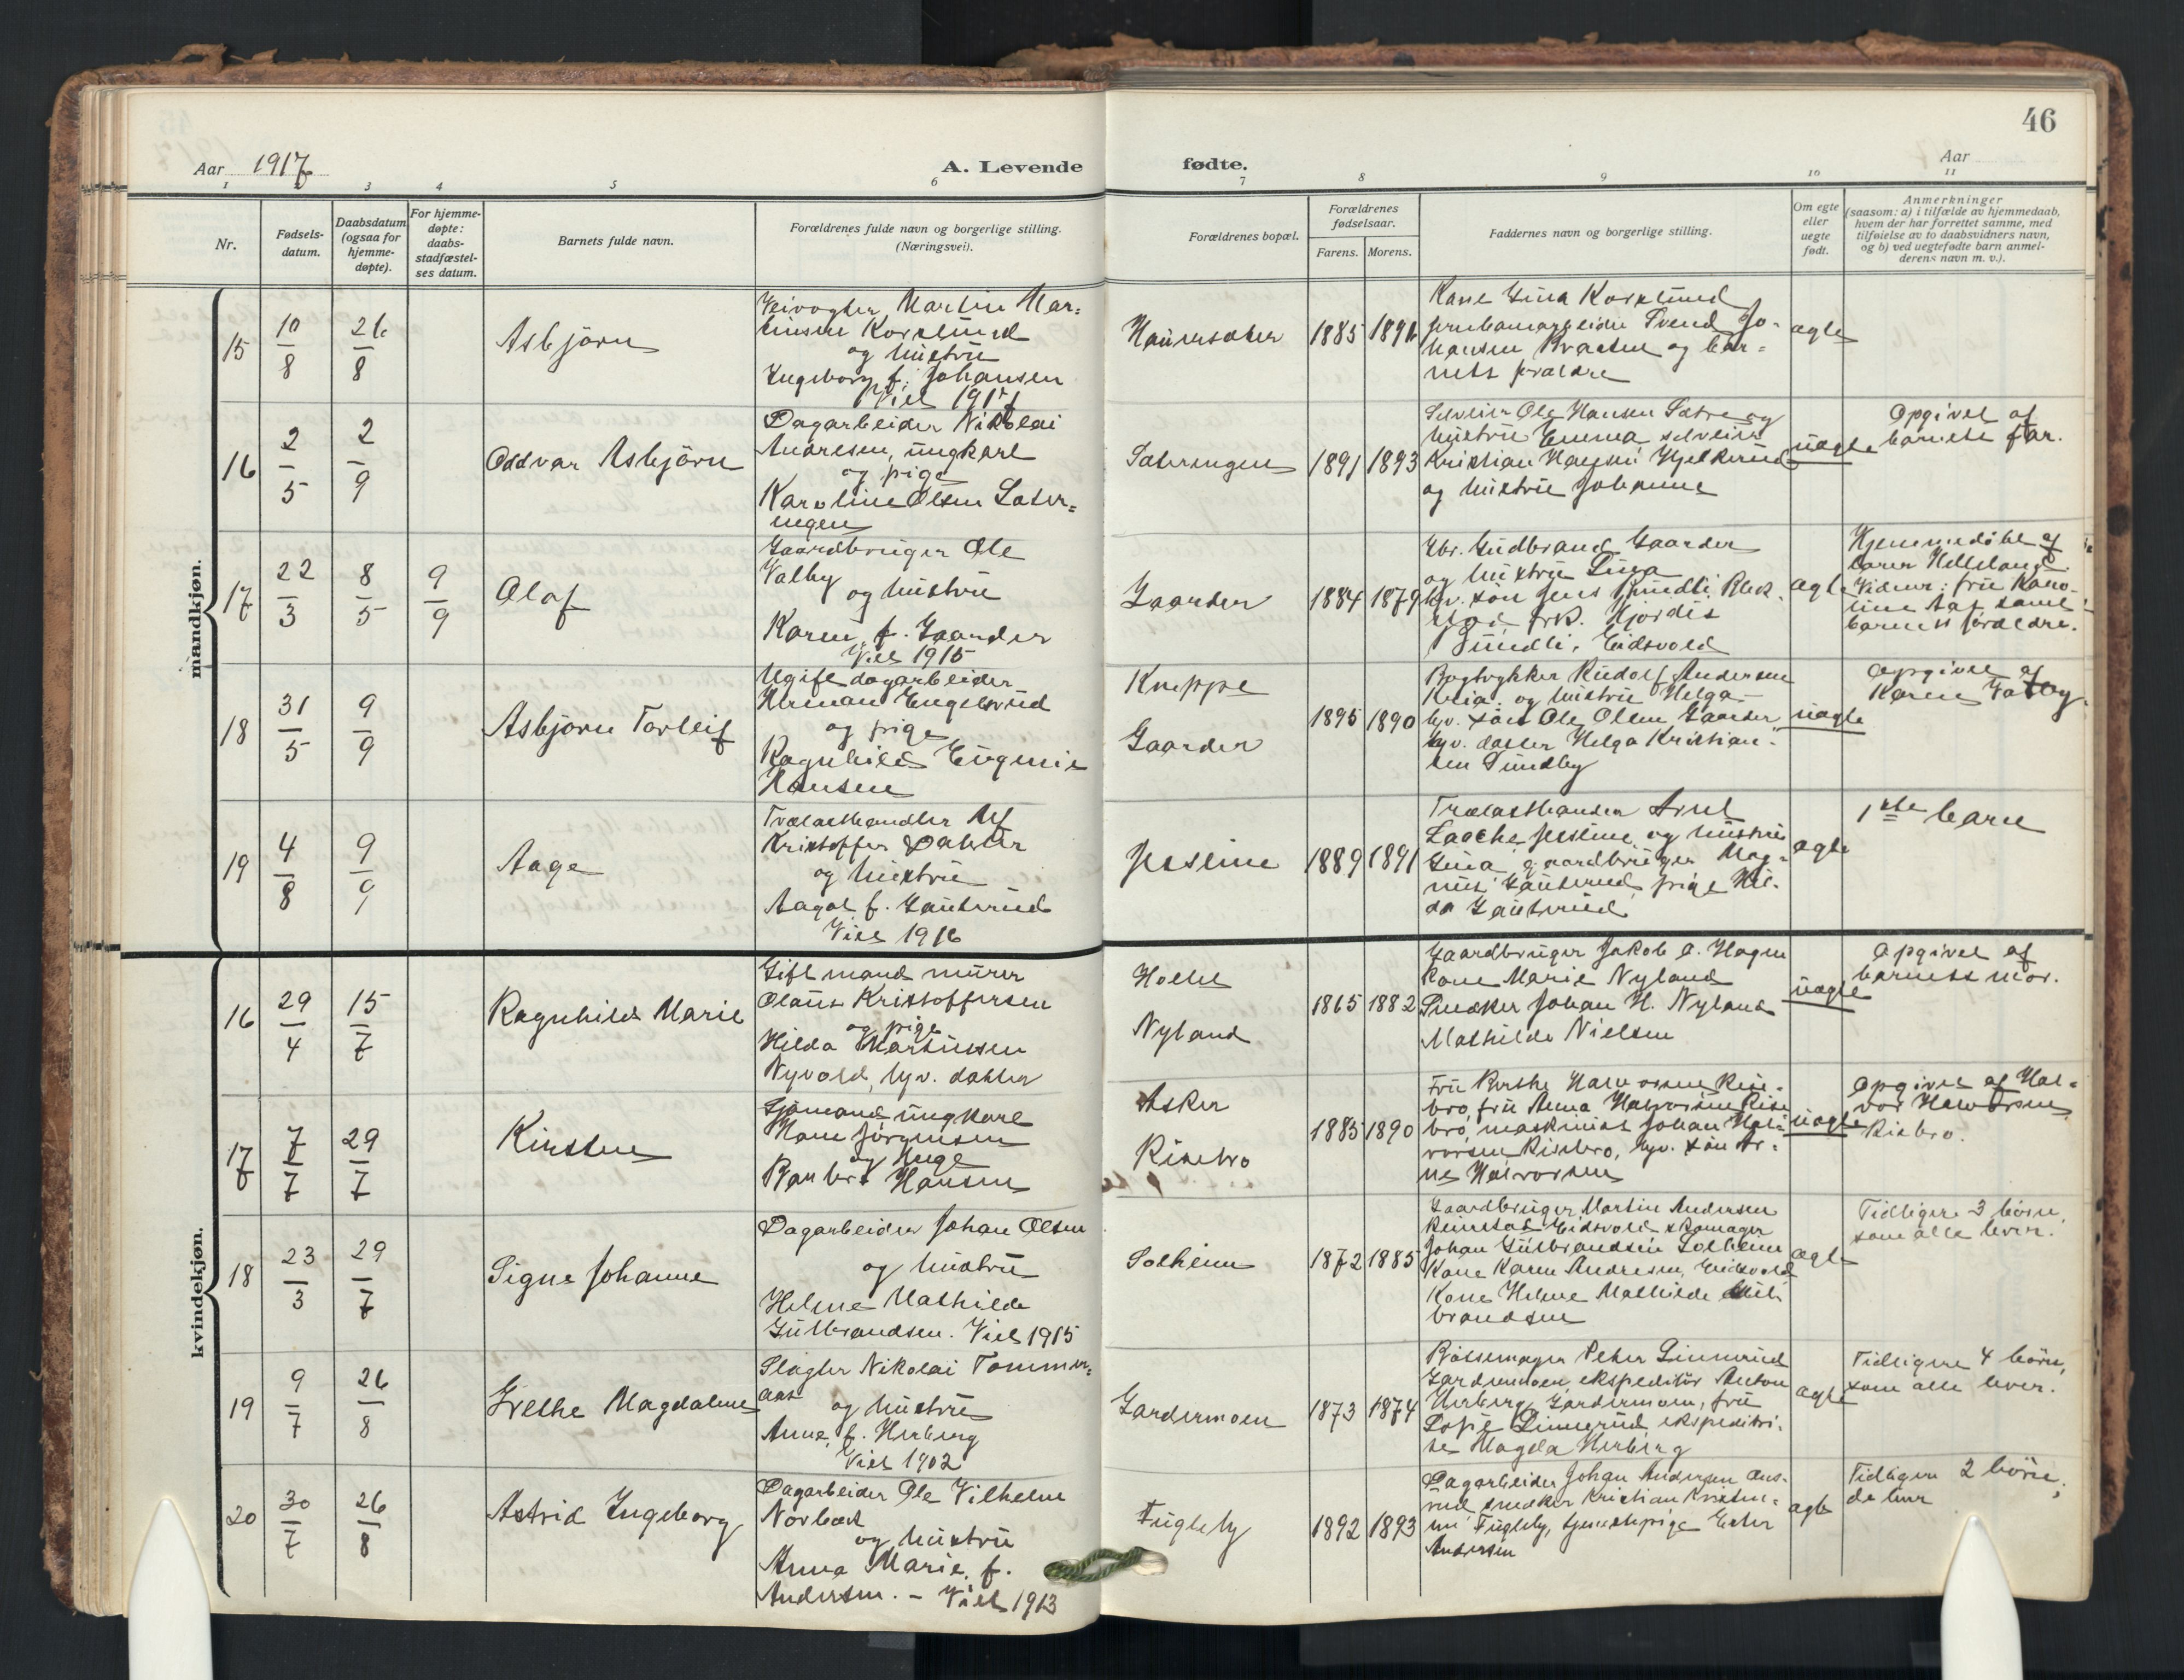 46
Aar 1917
A. Levende
fødte.
Aar
1 2 3 4 5 6 7 8 9 10 11
Nr.
Fødsels-
datum.
Daabsdatum
(ogsaa for
hjemme-
døpte).
For hjemme-
døpte:
daabs-
stadfæstel-
ses datum.
Barnets fulde navn.
Forældrenes fulde navn og borgerlige stilling.
(Næringsvei).
Forældrenes bopæl.
Forældrenes
fødselsaar.
Farens. Morens.
Faddernes navn og borgerlige stilling.
Om egte
eller
uegte
født.
Anmerkninger
(saasom: a) i tilfælde av hjemmedaab,
hvem der har forrettet samme, med
tilføielse av to daabsvidners navn,
og b) ved uegtefødte barn anmel-
derens navn m. v.).
mandkjøn.
15
10/8
26/8
Asbjörn
Veivogter Martin Mar=
tinsen Korslund
og hustru
Ingeborg f. Johansen
Viet 1917
Hauersæter
1885
Kone Gina Korslund
jernbanearbeider Svend Jo-
hansen Braaten og bar=
nets forældre
ægte
16
2/5
2/9
Oddvar Asbjörn
Dagarbeider Nikolai
Andresen, ungkarl
og pige
Karoline Olsen Sæter=
engen
Sæterengen
1891 1893
Selveier Ole Hansen Sætre og
hustru Emma, selveier
Kristian Hansen Hjelkerud
og hustru Johanne
uægte
Opgivet af
barnets far.
17
22/3
8/5
9/9
Olaf
Gaardbruger Ole
Valby
og hustru
Karen, f. Gaarder
Viet 1915
Gaarder
1884 1879
Gbr. Gudbrand Gaarder
og hustru Lina
hjv. søn Jens Sundli,
frk. Hjördis
Sundli, Eidsvold
ægte
Hjemmedöbt af
lærer Helleland.
Vidner: fru Karo-
line Aas samt
barnets forældre.
18
31/5
9/9
Asbjörn Torleif
Ugift dagarbeider
Herman Engelsrud
og pige
Ragnhild Eugenie
Hansen
Kneppe
Gaarder
1895 1890
Bogtrykker Rudolf Andersen
Kria. og hustru Helga
hjv. søn Ole Olsen Gaarder
hjv. datter Helga Kristian-
sen Sundby
uægte
Opgivet af
Karen Valby.
19
4/8
9/9
Aage
Trælasthandler Alf
Kristoffer Dahler
og hustru
Aagot f. Gauterud
Viet 1916
Jessheim
1889 1891
Trælasthandler Arnt
Laache Jessheim og hustru
Gina, gaardbruger Mag-
nus Gauterud, pige Hil-
da Gauterud
ægte
1ste barn
kvindekjøn.
16
29/4
15/7
Ragnhild Marie
Gift mand murer
Olaus Kristoffersen
og pige
Hilda Martinsen
Nyvold, hjv. datter
Holter
Nyland
1865 1882
Gaardbruger Jakob O. Hagen
Kone Marie Nyland
Snedker Johan H. Nyland
Mathilde Nielsen
uægte
Opgivet af
barnets mor.
17
7/7
29/7
Kirsten
Sjömand, ungkarl
Hans Jörgensen
og pige
Hansen
Asker
Risebro
1885 1890
Fru Berthe Halvorsen Rise-
bro, fru Anna Halvorsen Rise
bro, maskinist Johan Hal-
vorsen Risebro, hjv. søn Ar-
ne Halvorsen
uægte
Opgivet af Hal=
vor Halvorsen
Risebro.
18
23/3
29/7
Signe Johanne
Dagarbeider Johan Olsen
og hustru
Helene Mathilde
Gulbrandsen. Viet 1915
Solheim
1872 1885
Gaardbruger Martin Andersen
Eidsvold skomager
Johan Gulbrandsen Solheim
Kone Karen Andresen, Eidsvold
Kone Helene Mathilde Gul-
brandsen
ægte
Tidligere 3 börn,
som alle lever.
19
9/7
26/8
Grethe Magdalene
Slagter Nikolai Tommer=
aas
og hustru
Anna, f. Herberg
Viet 1902
Gardermoen
1873 1874
Peter Linnerud
Gardermoen, ekspeditör Anton
Herberg, Gardermoen, fru
Sofie Linnerud, ekspeditri-
se Magda Herberg
ægte
Tidligere 4 börn,
som alle lever.
20
30/7
26/8
Astrid Ingeborg
Dagarbeider Ole Vilhelm
og hustru
Anna Marie, f.
Andersen. - Viet 1913
Fugleby
1892 1893
Dagarbeider Johan Andersen
snedker Kristian
Fugleby, tjenestepige Ester
Andersen
ægte
Tidligere 2 börn,
de lever